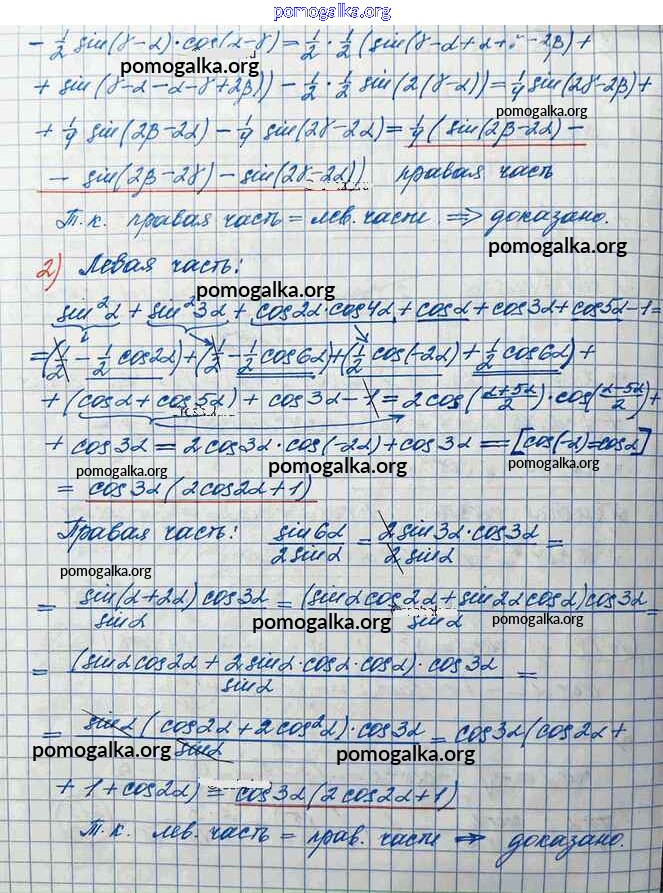 pomogalka.org
- 1/2 sin(γ-α)·cos(α-γ) = 1/2 · 1/2 (sin(γ-α+α+γ-2β) +
pomogalka.org
+ sin(γ-α-α-γ+2β)) - 1/2 · 1/2 sin(2(γ-α)) = 1/4 sin(2γ-2β) +
pomogalka.org
+ 1/4 sin(2β-2α) - 1/4 sin(2γ-2α) = 1/4 (sin(2β-2α) -
pomogalka.org
- sin(2β-2γ) - sin(2γ-2α)) правая часть
Т.к. правая часть = лев. части ⇒ доказано.
pomogalka.org
2) Левая часть:
pomogalka.org
sin²α + sin²3α + cos2α·cos4α + cosα + cos3α + cos5α - 1 =
= (1/2 - 1/2 cos2α) + (1/2 - 1/2 cos6α) + (1/2 cos(-2α) + 1/2 cos6α) +
+ (cosα + cos5α) + cos3α - 1 = 2cos((α+5α)/2)·cos((α-5α)/2) +
+ cos3α = 2cos3α·cos(-2α) + cos3α = [cos(-α)=cosα]
pomogalka.org pomogalka.org pomogalka.org
= cos3α(2cos2α+1)
Правая часть: sin6α/2sinα = 2sin3α·cos3α/2sinα =
pomogalka.org
= sin(α+2α)cos3α/sinα = (sinαcos2α + sin2αcosα)cos3α/sinα =
pomogalka.org pomogalka.org pomogalka.org
= (sinαcos2α + 2sinα·cosα·cosα)·cos3α/sinα =
= sinα(cos2α + 2cos²α)·cos3α/sinα = cos3α(cos2α +
pomogalka.org pomogalka.org
+ 1 + cos2α) = cos3α(2cos2α+1)
Т.к. лев. часть = прав. части ⇒ доказано.